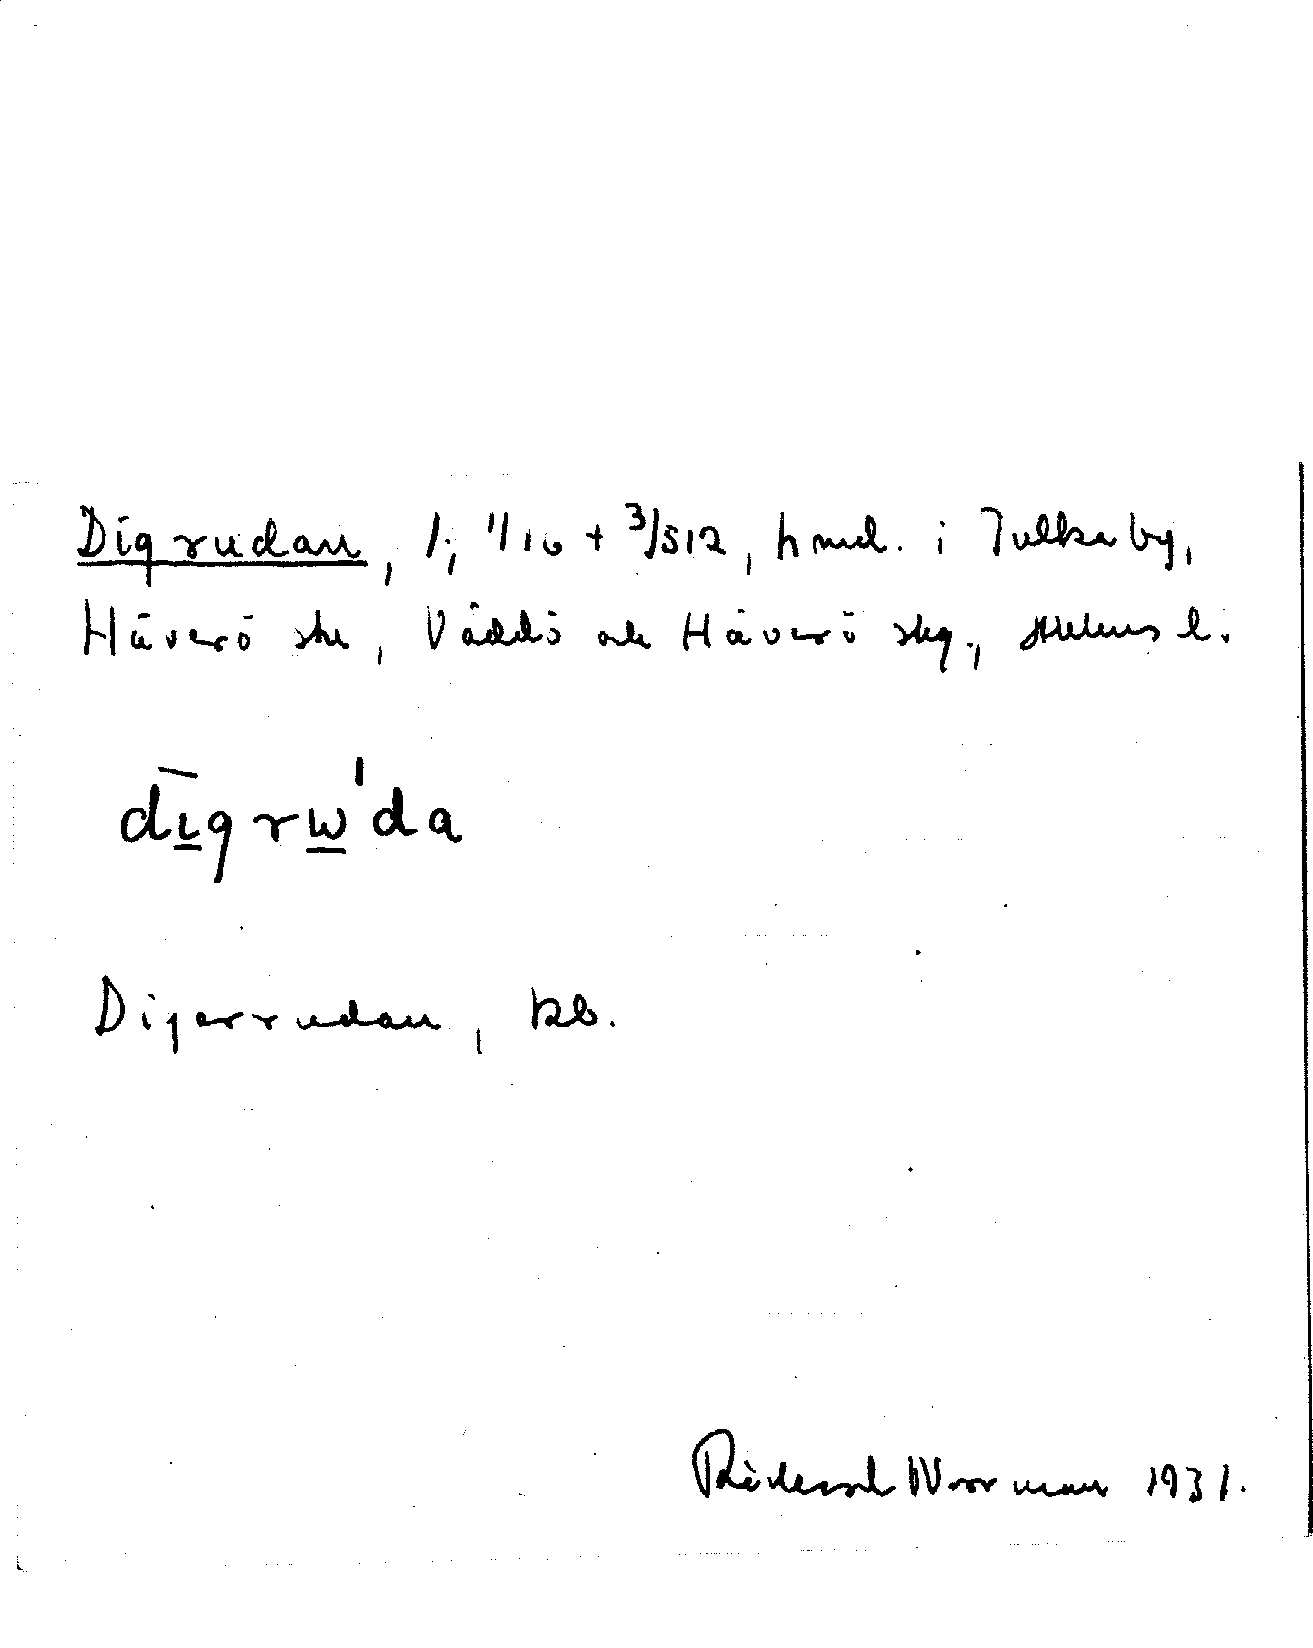 Digrudan, 1, 1/16 + 3/512, hmd. i Tulka by,
Häverö skn, Väddö och Häverö skg., Sthlms l.
dīgrw'da
Digerrudan, kb.
Rickard Norrman 1931.